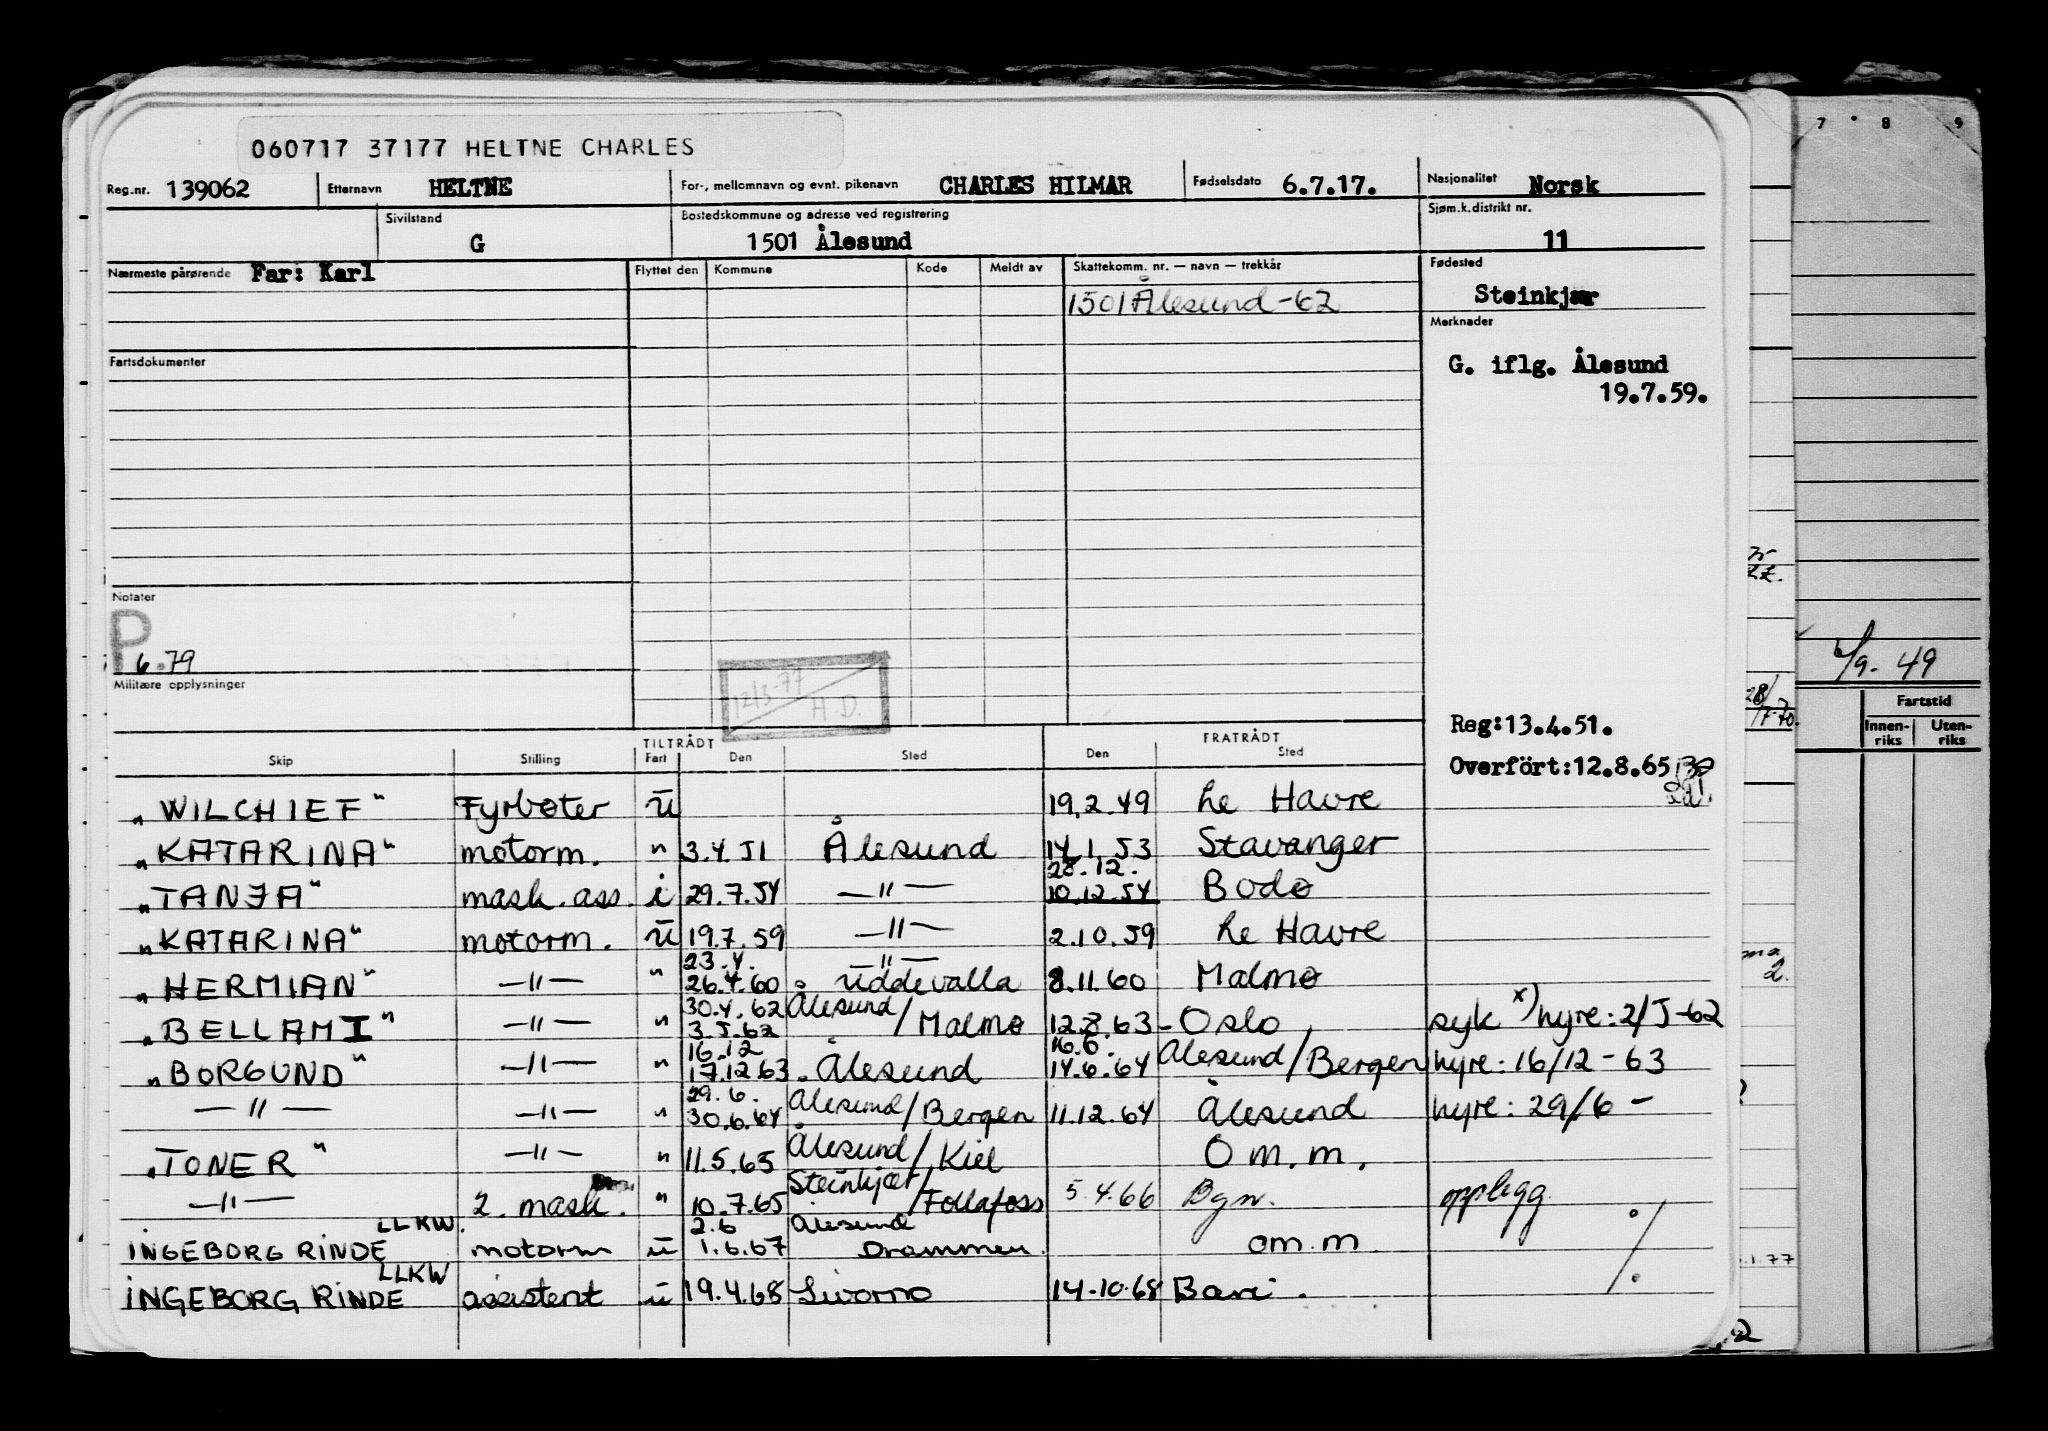 060717 37177 HELTNE CHARLES
Reg.nr. 139062 Etternavn HELTNE For-, mellomnavn og evnt. pikenavn CHARLES HILMAR Fødselsdato 6.7.17. Nasjonalitet Norsk
Sivilstand G Bostedskommune og adresse ved registrering 1501 Ålesund Sjøm.k.distrikt nr. 11
Nærmeste pårørende Far: Karl Flyttet den Kommune Kode Meldt av Skattekomm. nr. — navn — trekkår Fødested
1501 Ålesund -62 Steinkjær
Merknader
Fartsdokumenter G. iflg. Ålesund
19.7.59.
Notater
P
6.79
Militære opplysninger
12/5-77
H.D.
Reg:13.4.51.
Overført:12.8.65
TILTRÅDT FRATRÅDT
Skip Stilling Fart Den Sted Den Sted
"WILCHIEF" Fyrbøter ū 19.2.49 Le Havre
"KATARINA" motorm. " 3.4.51 Ålesund 14.1.53 Stavanger
28.12.
"TANJA" mask.ass. i 29.7.54 —"— 10.12.54 Bodø
"KATARINA" motorm. ū 19.7.59 —"— 2.10.59 Le Havre
23.4. —"—
"HERMIAN" —"— " 26.4.60 Uddevalla 8.11.60 Malmø
30.4.62 Ålesund/
"BELLAMI" —"— " 3.5.62 Malmø 12.8.63 - Oslo syk x) hyre: 2/5-62
16.12 16.6.
"BORGUND" —"— " 17.12.63 Ålesund 14.6.64 Ålesund/Bergen hyre: 16/12-63
29.6.
—"— —"— " 30.6.64 Ålesund/Bergen 11.12.64 Ålesund hyre: 29/6 -
"TONER" —"— " 11.5.65 Ålesund/Kiel Om.m.
—"— 2. mask. " 10.7.65 Steinkjær/Follafoss 5.4.66 Bgn. opplegg
LLKW. 2.6 Ålesund
INGEBORG RINDE motorm u 1.6.67 Drammen. om.m
LLKW
INGEBORG RINDE assistent u 19.4.68 Livorno 14.10.68 Bari.
7 8 9
6/9. 49
Fartstid
Innen-riks Uten-riks
28/
/7.70.
.1.77